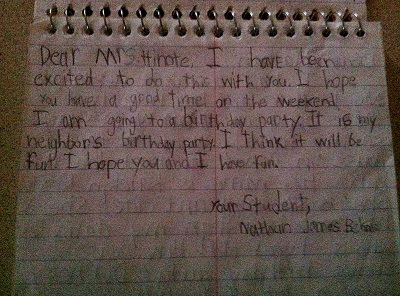 Dear Mrs. Hinote, I have been
excited to do this with you. I hope
you have a good time on the weekend.
I am going to a birthday party. It is my
neighbor's birthday party. I think it will be
fun. I hope you and I have fun.
Your Student,
Nathan James